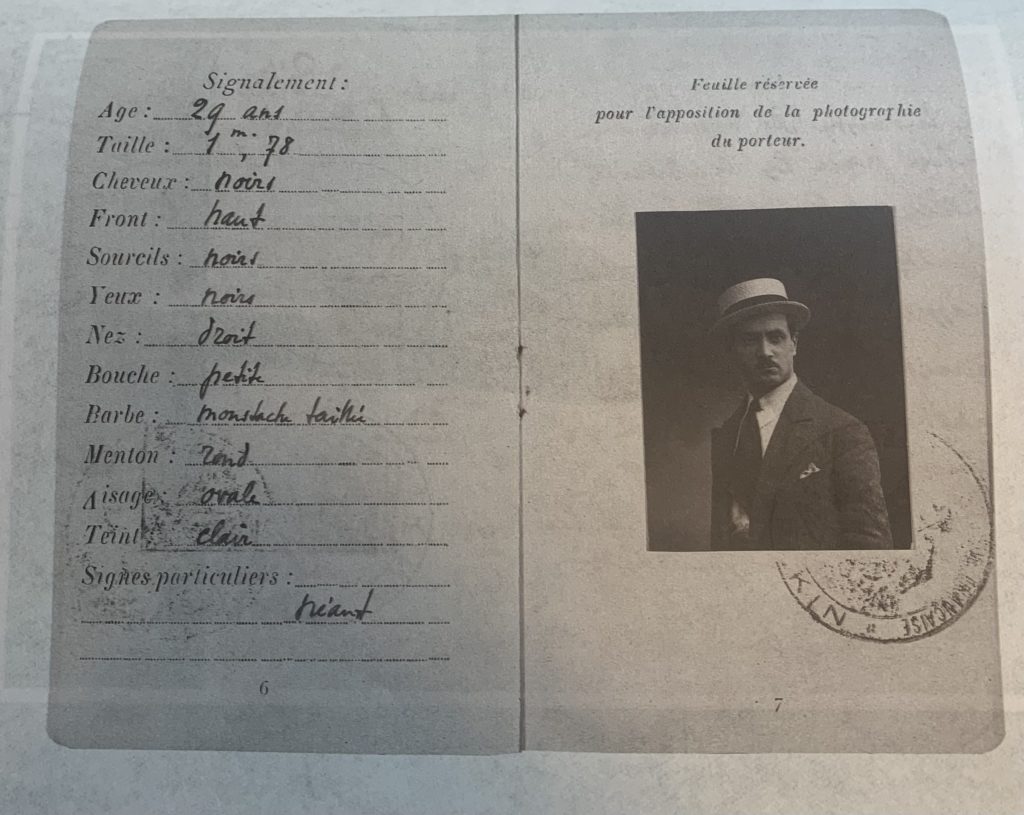 Signalement :
Age : 29 ans
Taille : 1 m. , 78
Cheveux : noirs
Front : haut
Sourcils : noirs
Yeux : noirs
Nez : droit
Bouche : petite
Barbe : moustache taillée
Menton : rond
Visage : ovale
Teint : clair
Signes particuliers :
néant
6
Feuille réservée
pour l'apposition de la photographie
du porteur.
KIN "
FRANÇAISE
7